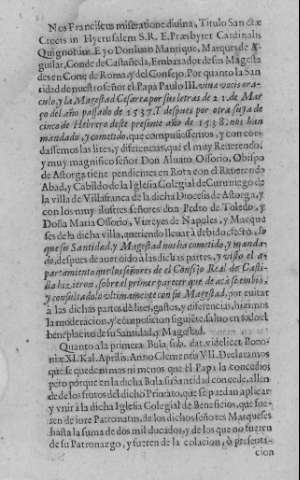 Nos Franciscus miseratione divina, Titulo Sanctæ
Crucis in Hyerusalem S.R.E. Præsbyter Cardinalis
Quignonius. E yo Don Iuan Manrique, Marques de A-
guilar, Conde de Castañeda, Embaxador de su Magesta
des en Corte de Roma, y del Consejo. Por quanto la San
tidad de nuestro señor el Papa Paulo III. viva vocis ora-
culo, y la Magestad Cesarea por sus letras de 21. de Mar
ço del año passado de 1537. Y despues por otra suya de
cinco de Hebrero deste presente año de 1538. nos han
mandado, y cometido, que compusiessemos, y con cor-
dassemos las lites, y diferencias, que el muy Reverendo,
y muy magnifico señor Don Alvaro Ossorio, Obispo
de Astorga tiene pendientes en Rota con el Reverendo
Abad, y Cabildo de la Iglesia Colegial de Cluniego de
la villa de Villafranca de la dicha Diocesis de Astorga, y
con los muy ilustres señores don Pedro de Toledo, y
Doña Maria Ossorio, Virreyes de Napoles, y Marque
ses de la dicha villa, queriendo llevar à debido efecto, lo
que su Santidad, y Magestad nos ha cometido, y manda-
do, despues de aver oido à las dichas partes, y visto el a-
partamento que los señores de el Consejo Real de Casti-
lla hizieron, sobre el primer parecer que de acà se embiò,
y consultado lo ultimamente con su Magestad, por evitar
à las dichas partes de lites, gastos, y diferencias, hazemos
la moderacion, y composicion siguiente, salvo en todo el
beneplacito de su Santidad, y Magestad.
Quanto à la primera Bula, sub. dat. videlicet, Bono-
niæ XI. Kal. Aprilis. Anno Clementis VII. Declaramos
que se quede ni mas ni menos que el Papa la concediò
pero porque en la dicha Bula su Santidad concede, allen-
de de los frutos del dicho Priorato, que se puedan aplicar
y vnir à la dicha Iglesia Colegial de Beneficios, que fue-
ren de iure Patronatus, de los dichos señores Marqueses
hasta la suma de dos mil ducados, y de los que no fueren
de su Patronazgo, y fueren de la colacion, ò presenta-
cion